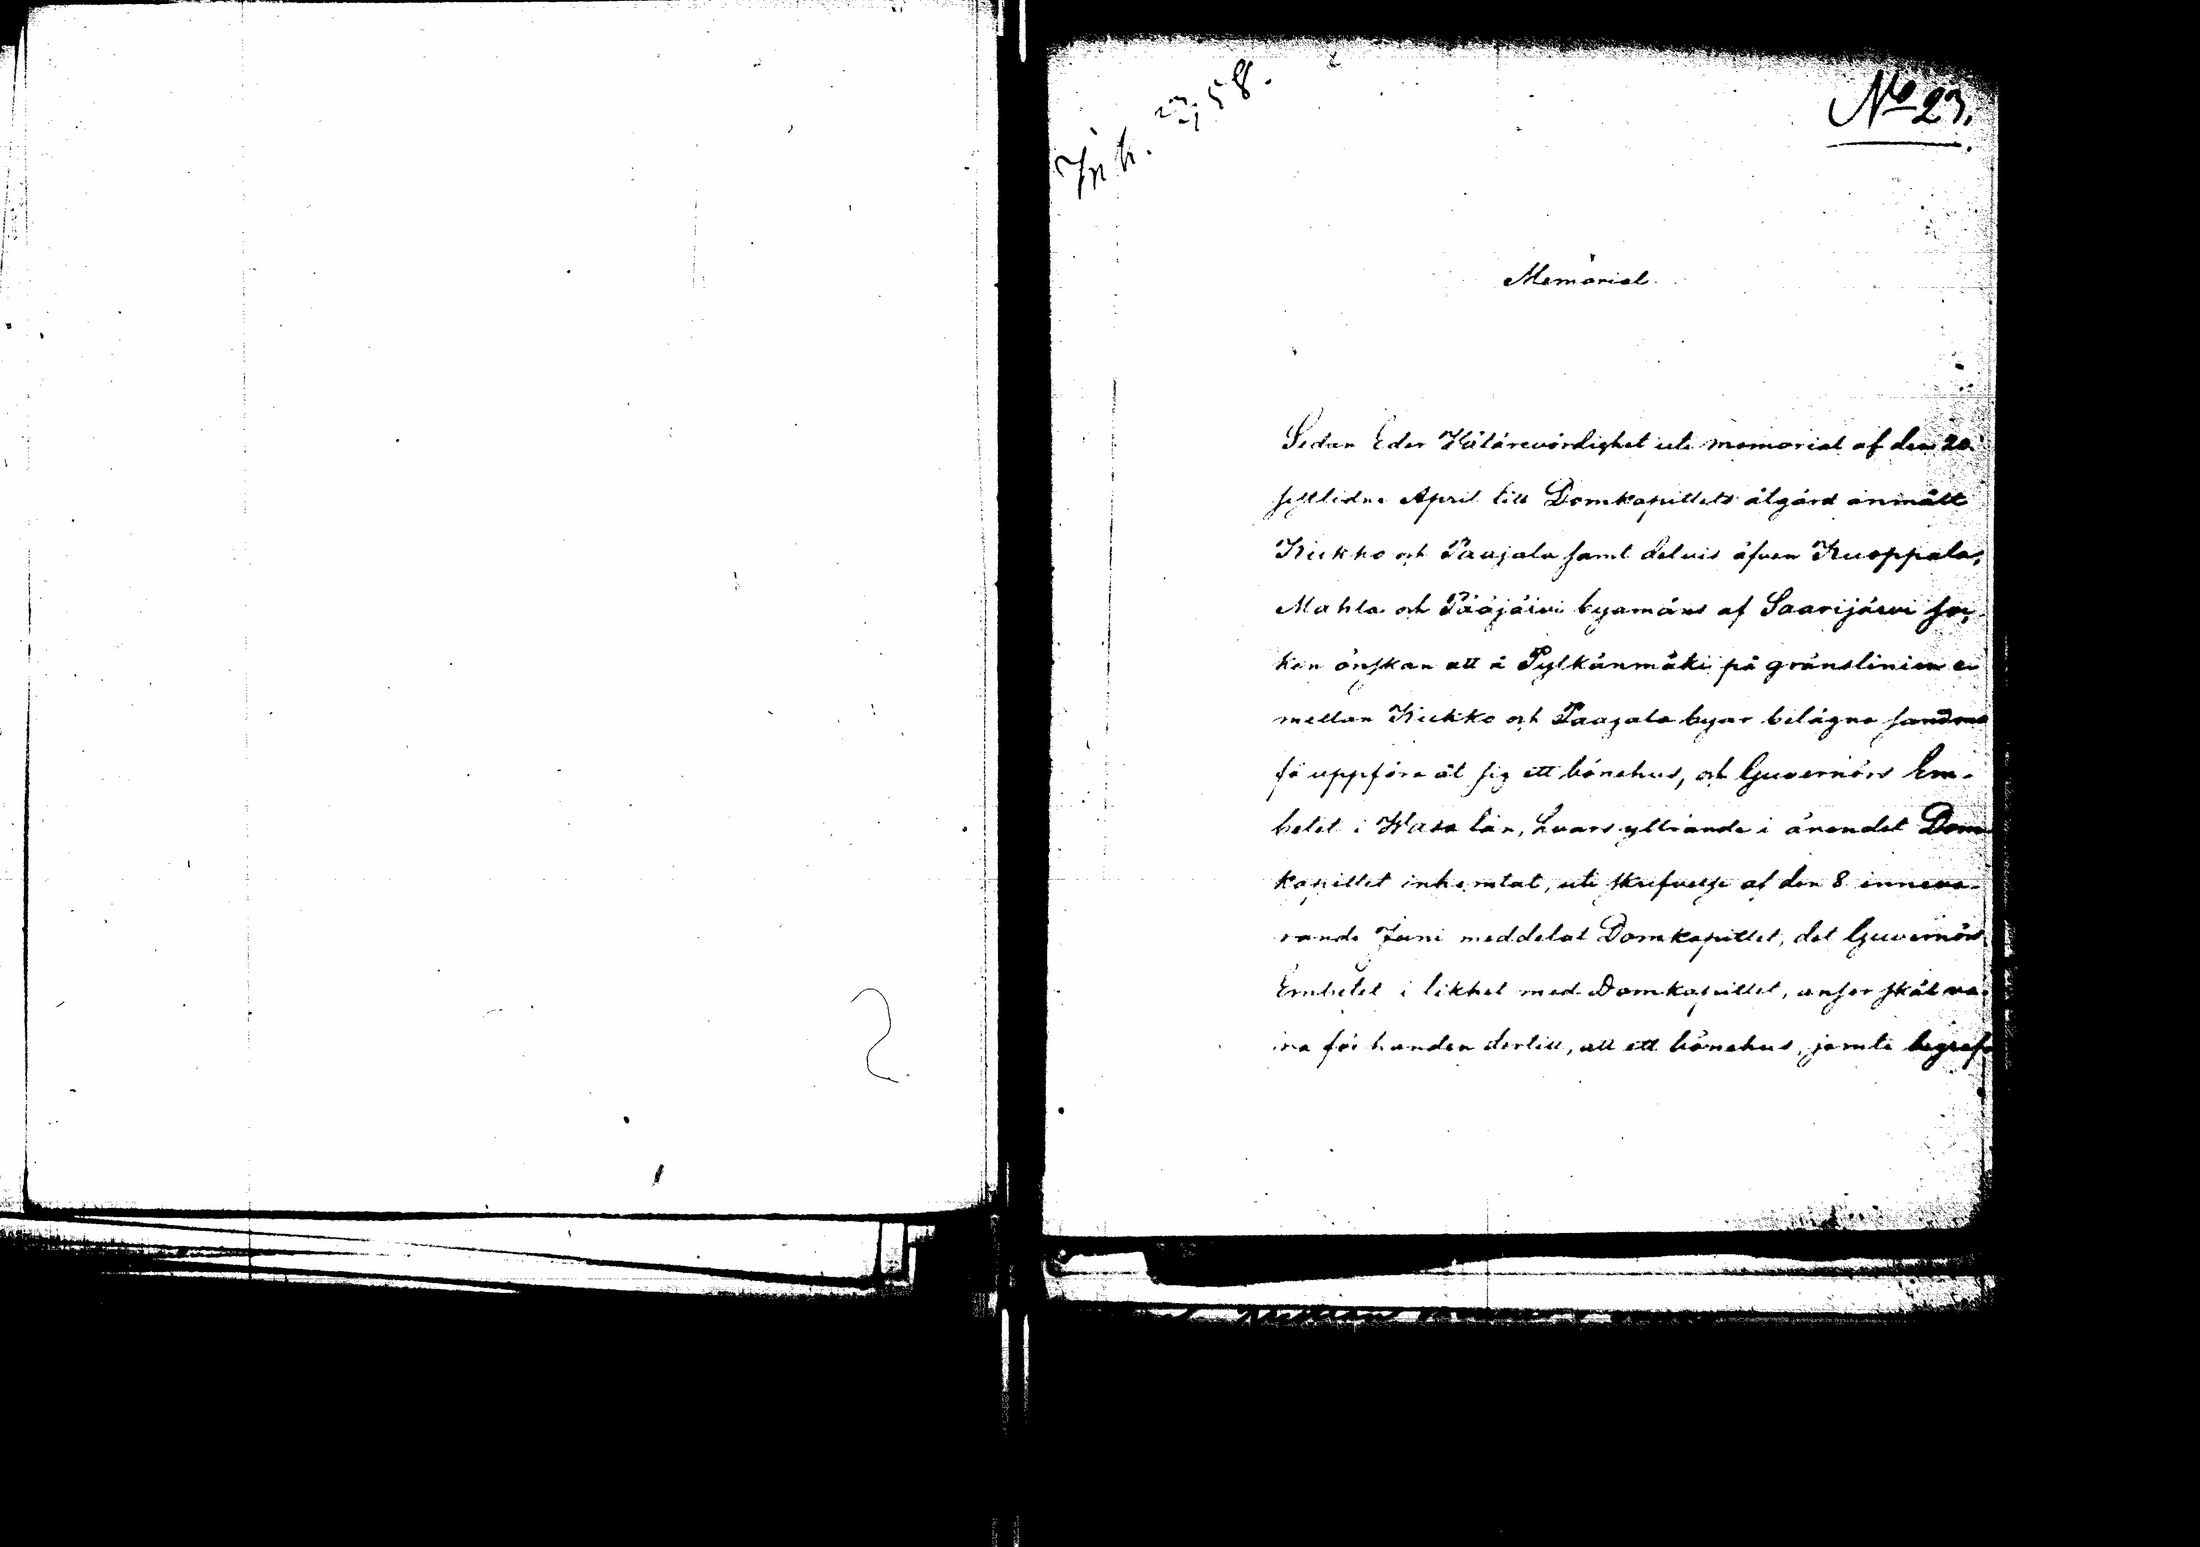 Ink. 2/7 58.
No 23.
Memorial
Sedan Eder Högärevördighet uti memorial af den 20
sistlidne April till Domkapitlets åtgärd anmält
Kukko och Paajala samt delvis äfven Kuoppala,
Mahla och Pääjärvi byamäns af Saarijärvi soc-
ken önskan att å Pylkönmäki på gränslinien e-
mellan Kukko och Paajala byar belägna sandmo
få uppföra åt sig ett bönehus, och Guvernörs Em-
betet i Wasa län, hvars yttrande i ärendet Dom-
kapitlet inhemtat, uti skrifvelse af den 8 inneva-
rande Juni meddelat Domkapitlet, det Guvernörs
Embetet i likhet med Domkapitlet, anser skäl va-
ra för handen dertill, att ett bönehus, jemte begraf-